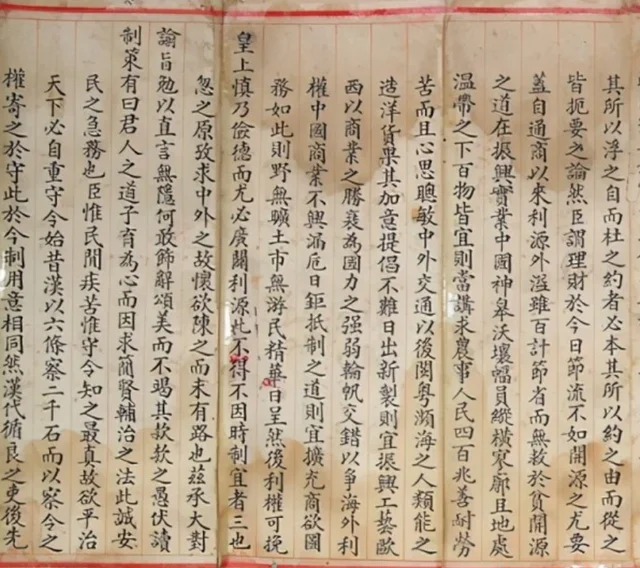 其所以浮之自而杜之約者必本其所以約之由而從之
皆扼要之論然臣謂理財於今日節流不如開源之尤要
蓋自通商以來利源外溢雖百計節省而無救於貧開源
之道在振興實業中國神皋沃壤幅員縱橫寥廓且地處
溫帶之下百物皆宜則當講求農事人民四百兆善耐勞
苦而且心思聰敏中外交通以後閩粵瀕海之人類能之
造洋貨果其加意提倡不難日出新製則宜振興工藝歐
西以商業之勝衰為國力之强弱輪帆交錯以爭海外利
權中國商業不興漏卮日鉅抵制之道則宜擴充商欲圖
務如此則野無曠土市無游民精華日呈然後利權可挽
皇上慎乃儉德而尤必廣闢利源此不得不因時制宜者三也
忽之原攷求中外之故懷欲陳之而未有路也茲承大對
諭旨勉以直言無隱何敢飾辭頌美而不竭其款款之愚伏讀
制策有曰君人之道子育為心而因求簡賢輔治之法此誠安
民之急務也臣惟民間疾苦惟守令知之最真故欲平治
天下必自重守令始昔漢以六條察二千石而以察令之
權寄之於守此於今制用意相同然漢代循良之吏後先